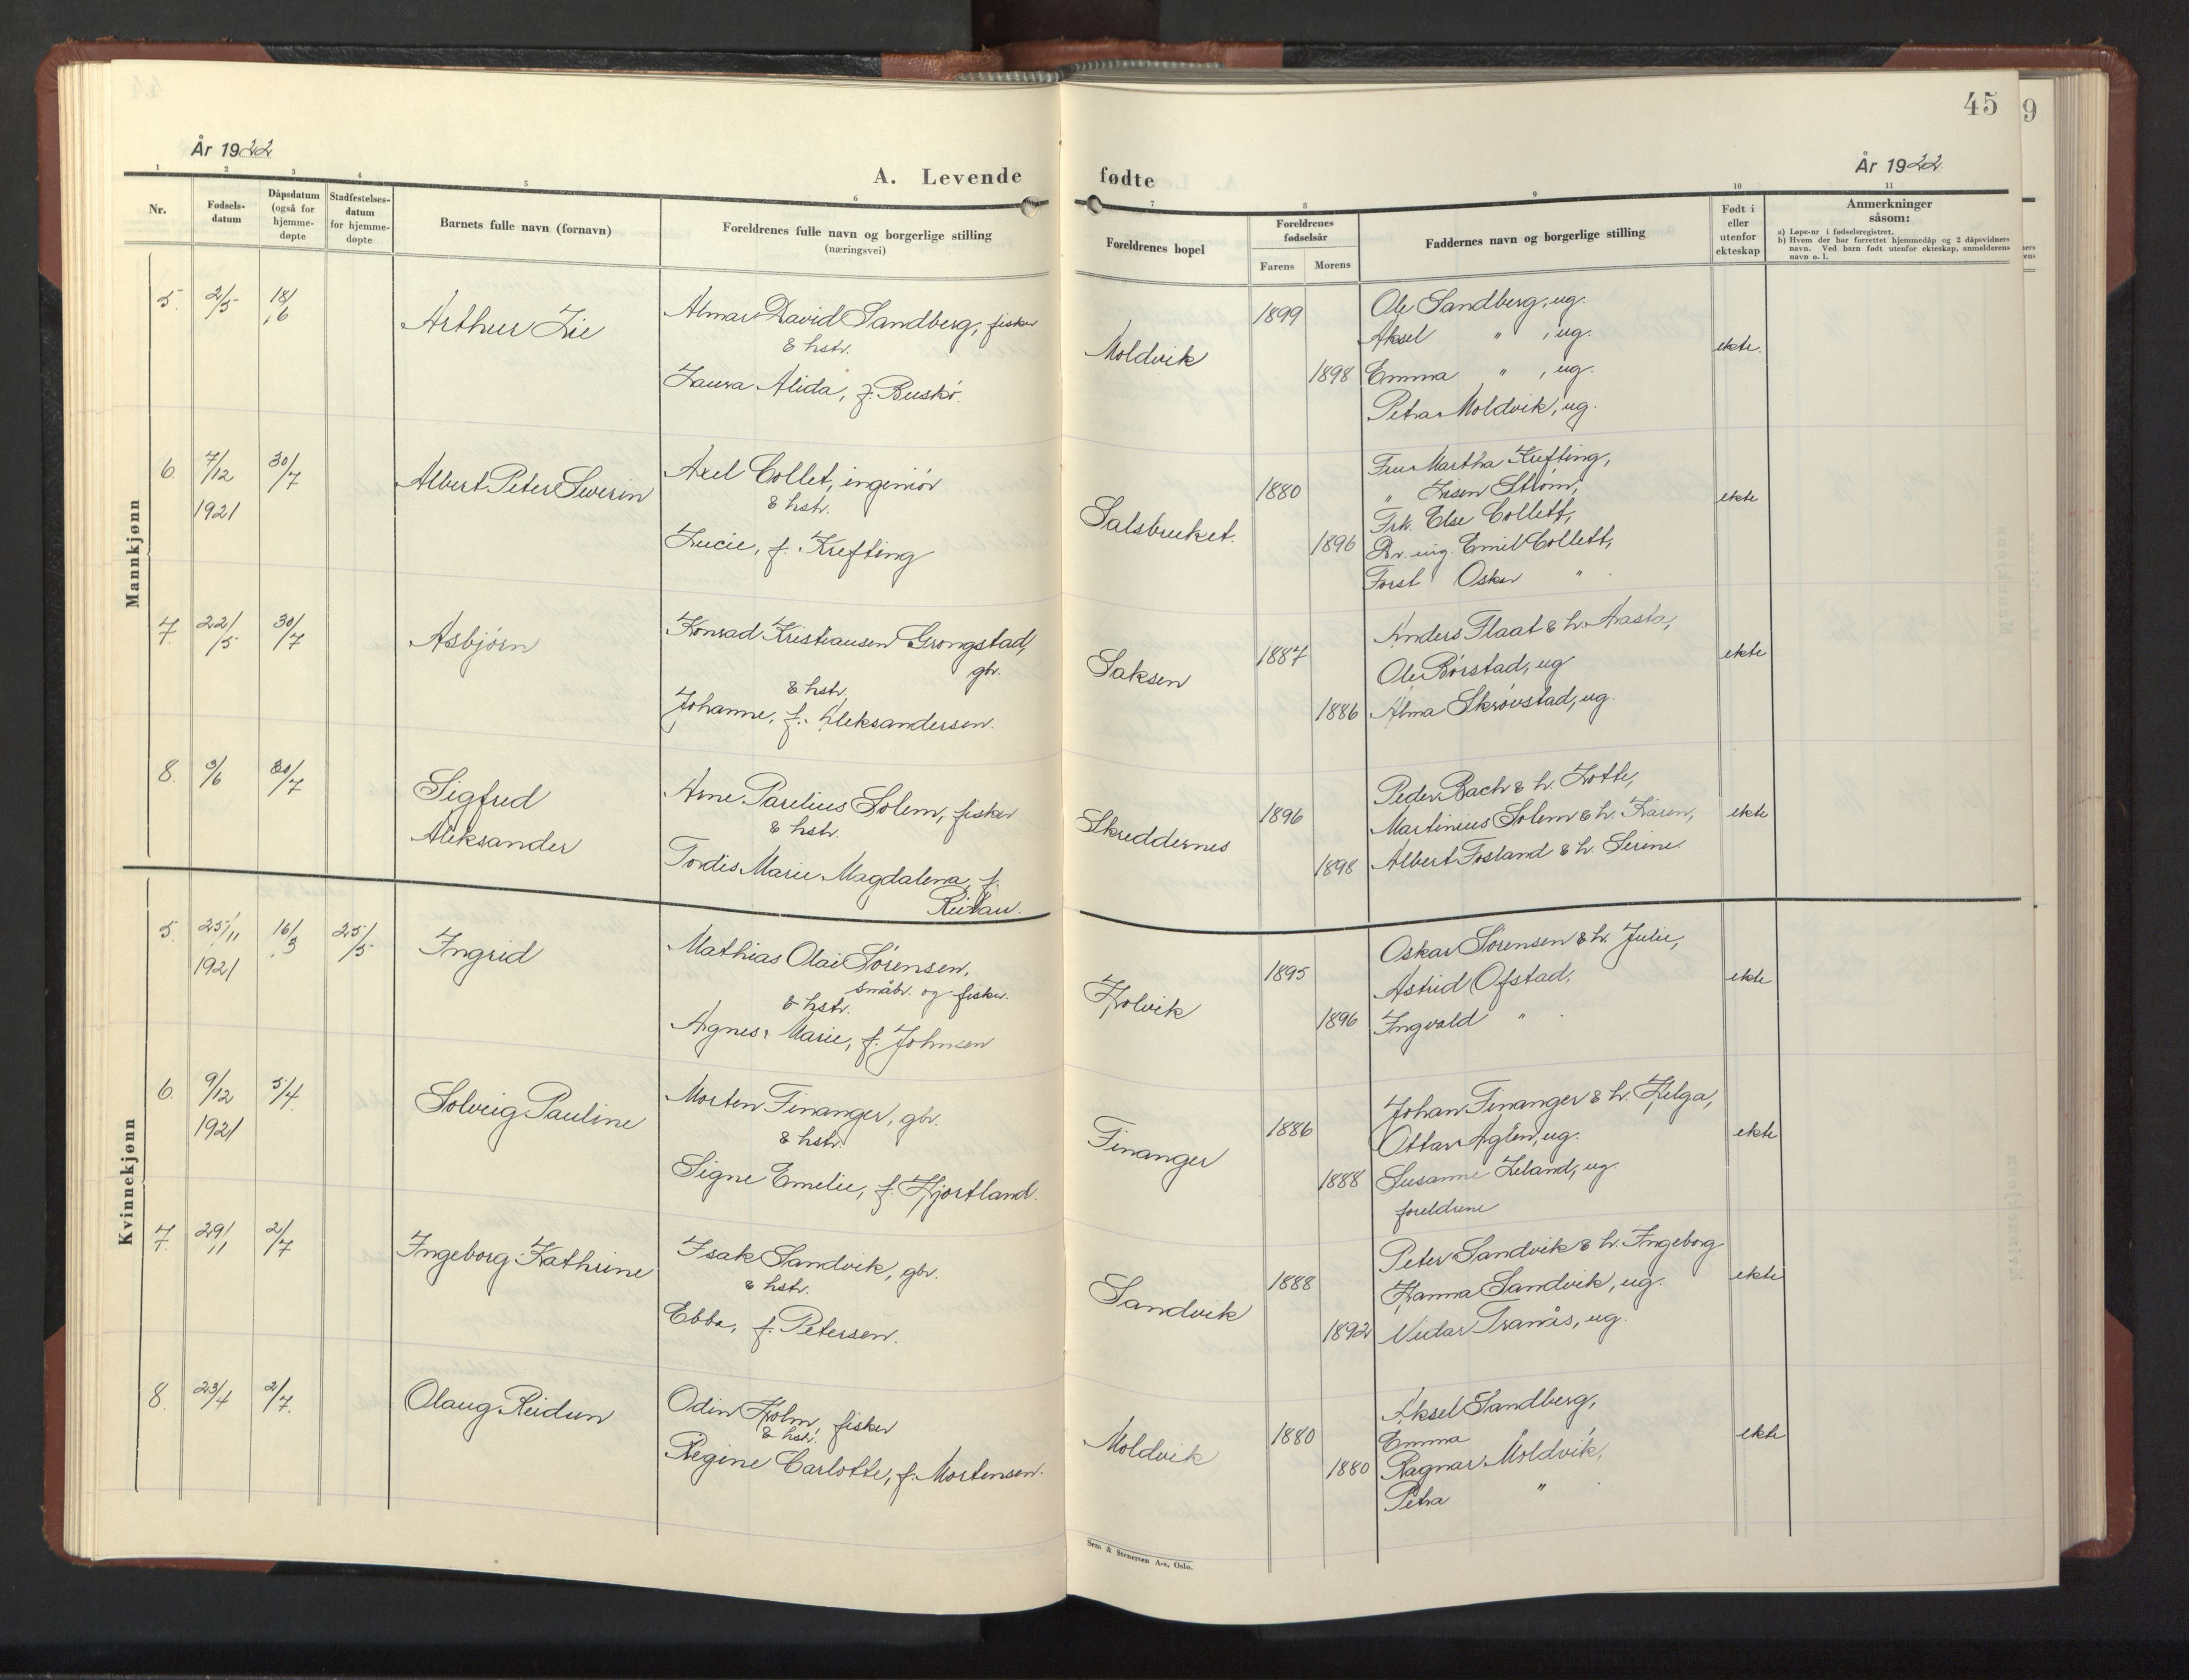 45
9
År 1922
År 1922
A. Levende fødte
1 2 3 4 5 6 7 8 9 10 11
Nr.
Fødsels-
datum
Dåpsdatum
(også for
hjemme-
døpte
Stadfestelses-
datum
for hjemme-
døpte
Barnets fulle navn (fornavn)
Foreldrenes fulle navn og borgerlige stilling
(næringsvei)
Foreldrenes bopel
Foreldrenes
fødselsår
Farens Morens
Faddernes navn og borgerlige stilling
Født i
eller
utenfor
ekteskap
Anmerkninger
såsom:
a) Løpe-nr i fødselsregistret.
b) Hvem der har forrettet hjemmedåp og 2 dåpsvidners
navn. Ved barn født utenfor ekteskap, anmelderens
navn o. l.
Mannkjønn
5. 2/5 18/6
Arthur Lie
Almar David Sandberg, fisker
& hstr.
Laura Alida, f. Buskø.
Moldvik
1899
1898
Ole Sandberg, ug.
Aksel " , ug.
Emma " , ug.
Petra Moldvik, ug.
ekte.
6. 7/12 30/7
1921
Albert Peter Severin
Axel Collet, ingeniør
& hstr.
Lucie, f. Krefting
Salsbruket.
1880
1896
Fru Martha Krefting,
" Strøm,
Frk. Else Collett,
Dr. ing. Emil Collett,
Forst Oskar "
ekte
7. 22/5 30/7
Asbjørn
Konrad Kristiansen Grongstad,
gbr.
& hstr.
Johanne, f. Aleksandersen.
Saksen
1887
1886
Anders Flaat & h. Aasta,
Ole Børstad, ug
Alma Skrøvstad, ug.
ekte
8. 9/6 30/7
Sigfred
Aleksander
Arne Parelius Solem, fisker
& hstr.
Tordis Marie Magdalena, f.
Skreddernes
1896
1898
Peder Bach & h. Lotte,
Martinius Solem & h. Karen,
Albert Fosland & h. Serine.
ekte
Kvinnekjønn
5. 25/11 16/3 25/5
1921
Ingrid
Mathias Olai Sørensen,
småbr. og fisker.
& hstr.
Agnes Marie, f. Johnsen
Holvik
1895
1896
Oskar Sørensen & h. Julie,
Astrid Ofstad,
Ingvald "
ekte
6. 9/12 5/4
1921
Solveig Pauline
Morten Finanger, gbr.
& hstr.
Signe Emelie, f. Hjortland.
Finanger
1886
1888
Johan Finanger & h. Helga,
Ottar Aglen, ug.
Susanne Leland, ug.
foreldrene
ekte
7. 29/11 2/7
Ingeborg Kathrine
Isak Sandvik, gbr.
& hstr.
Ebba, f. Petersen.
Sandvik
1888
1892
Peter Sandvik & h. Ingeborg
Hanna Sandvik, ug.
Vidar Tranås, ug.
ekte
8. 23/4 2/7.
Olaug Reidun
Odin Holm, fisker
& hstr.
Regine Carlotte, f. Mortensen.
Moldvik
1880
1880
Aksel Sandberg,
Emma "
Ragnar Moldvik,
Petra "
ekte
Sem & Stenersen A-s, Oslo.